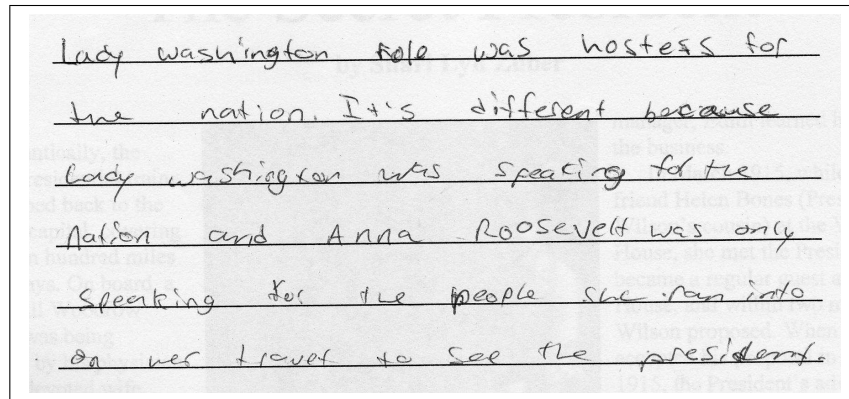 Lady washington role was hostess for
the nation. It's different because
Lady washington was speaking for the
nation and Anna Roosevelt was only
speaking for the people she ran into
on her travet to see the president.